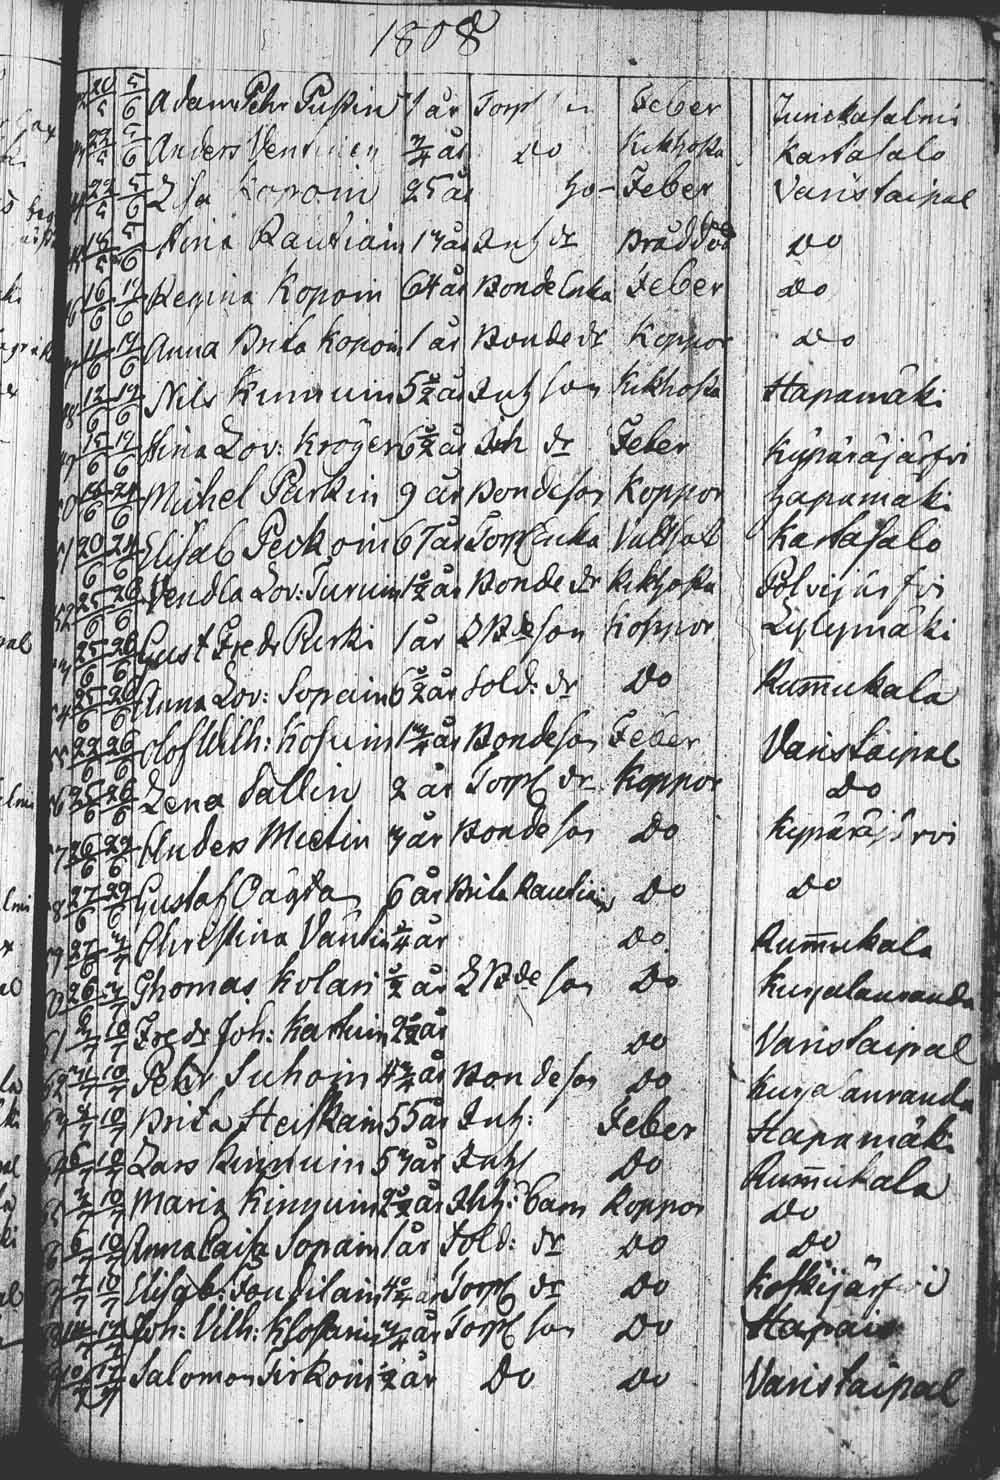 1808
20/5 5/6 Adam Pehr Pußin 1 år Torp Feber Junickasalmi
22/5 5/6 Anders Ventinen 3/4 år Do Kikhosta Kartasalo
22/5 5/6 Lisa Kopoin 25 år Feber Varistaipal
5/6 Stina Rautiain 13 år Inh dr Bråddöd Do
16/6 19/6 Regina Kopoin 64 år Bonde Enka Feber Do
11/6 19/6 Anna Brita Kopoin 1 år Bonde dr Koppor Do
12/6 19/6 Nils Kinnuin 5 1/2 år Inh son Kikhosta Hapamäki
15/6 19/6 Stina Lov: Kröger 6 1/2 år Inh dr Feber Kypäräjärfvi
18/6 24/6 Michel Parkin 9 år Bondeson Koppor Hapamäki
20/6 24/6 Elisab Peckoin 67 år Torp Enka Vattsot Kartasalo
25/6 26/6 Vendla Lov: Turuin 1 1/2 år Bonde dr Kikhosta Polvijärfvi
25/6 26/6 Gust Fredr Purki 1 år LBde son Koppor Lylymäki
25/6 26/6 Anna Lov: Sopain 6 1/2 år Sold: dr Do Rum̄ukala
22/6 26/6 Olof Wilh: Kosuin 1 3/4 år Bondeson Feber Varistaipal
25/6 26/6 Lena Tallin 2 år Torp dr Koppor Do
26/6 29/6 Anders Mietin 3 år Bondeson Do Kypäräjärvi
27/6 29/6 Gustaf Oägta 6 år Brita Rautiain Do Do
27/6 3/7 Christina Väntin 3/4 år Do Rum̄ukala
26/6 3/7 Thomas Kolari 1/2 år LBde son Do Kurjalanranda
10/7 Fredr Joh: Kartuin 2 1/2 år Do Varistaipal
10/7 Petr Suhoin 4 3/4 år Bondeson Do Kurjalanranda
10/7 Brita Heiskain 55 år Inh: Feber Hapamäki
6/7 10/7 Lars Kinnuin 53 år Inh Do Rum̄ukala
10/7 Maria Kinnuin 2 1/2 år Inh: barn Koppor Do
6/7 10/7 Anna Caisa Sopain 1 år Sold: dr Do Do
7/7 10/7 Elisab: 4 år Torp dr Do Koskijärfvi
17/7 Joh: Vilh: 3/4 år Torp son Do
10/7 17/7 Salomon Tirkoin 1/2 år Do Do Varistaipal